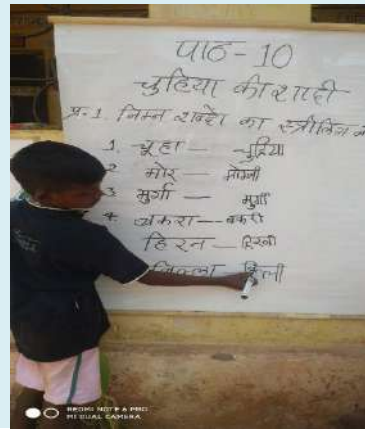 पाठ-10
चुहिया की शादी
प्र.1. निम्न शब्दो का स्त्रीलिंग
1. चूहा — चुहिया
2 मोर — मोरनी
3 मुर्गा — मुर्गी
4. बकरा — बकरी
हिरन — हिरनी
REDMI NOTE 6 PRO
MI DUAL CAMERA